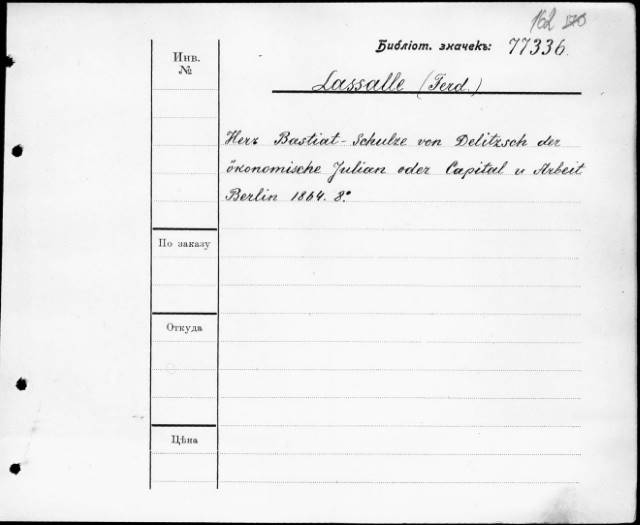 162
Библіот. значекъ: 77336.
Инв.
№
Lassalle (Ferd.)
Herr Bastiat-Schulze von Delitzsch der
ökonomische Julian oder Capital u Arbeit
Berlin 1864. 8°
По заказу
Откуда
Цѣна